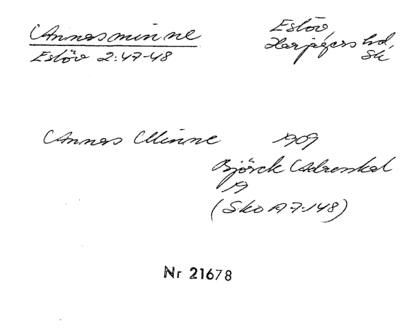 Annesminne
Estöv 2:47-48
Estöv
Harjagers hd,
Sk
Annas Minne 1909
Björck Adresskal
19
(Sko A7:148)
Nr 21678